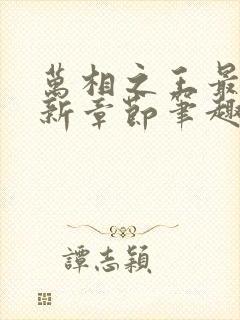 萬相之王最
新章節筆趣
譚志穎